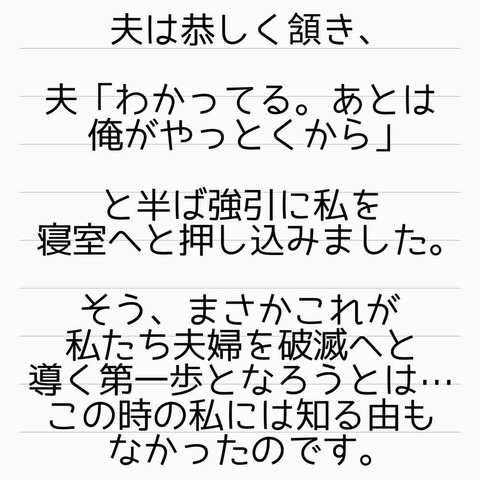 夫は恭しく頷き、
夫「わかってる。あとは
俺がやっとくから」
と半ば強引に私を
寝室へと押し込みました。
そう、まさかこれが
私たち夫婦を破滅へと
導く第一歩となろうとは…
この時の私には知る由も
なかったのです。